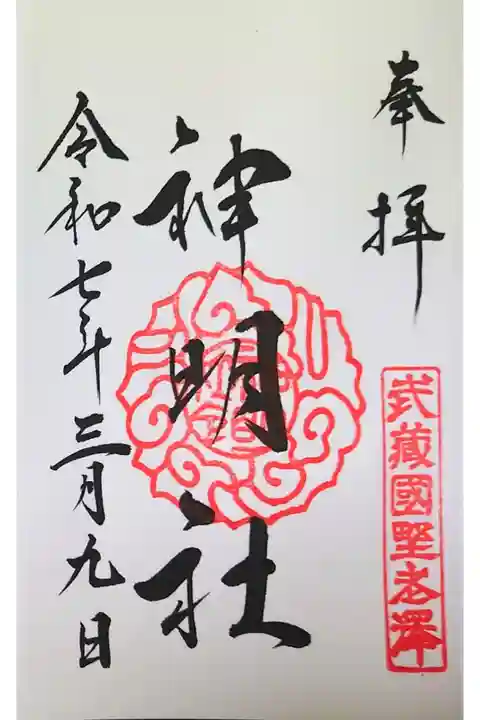 奉拝
武蔵國野老澤
神明社
令和七年三月九日